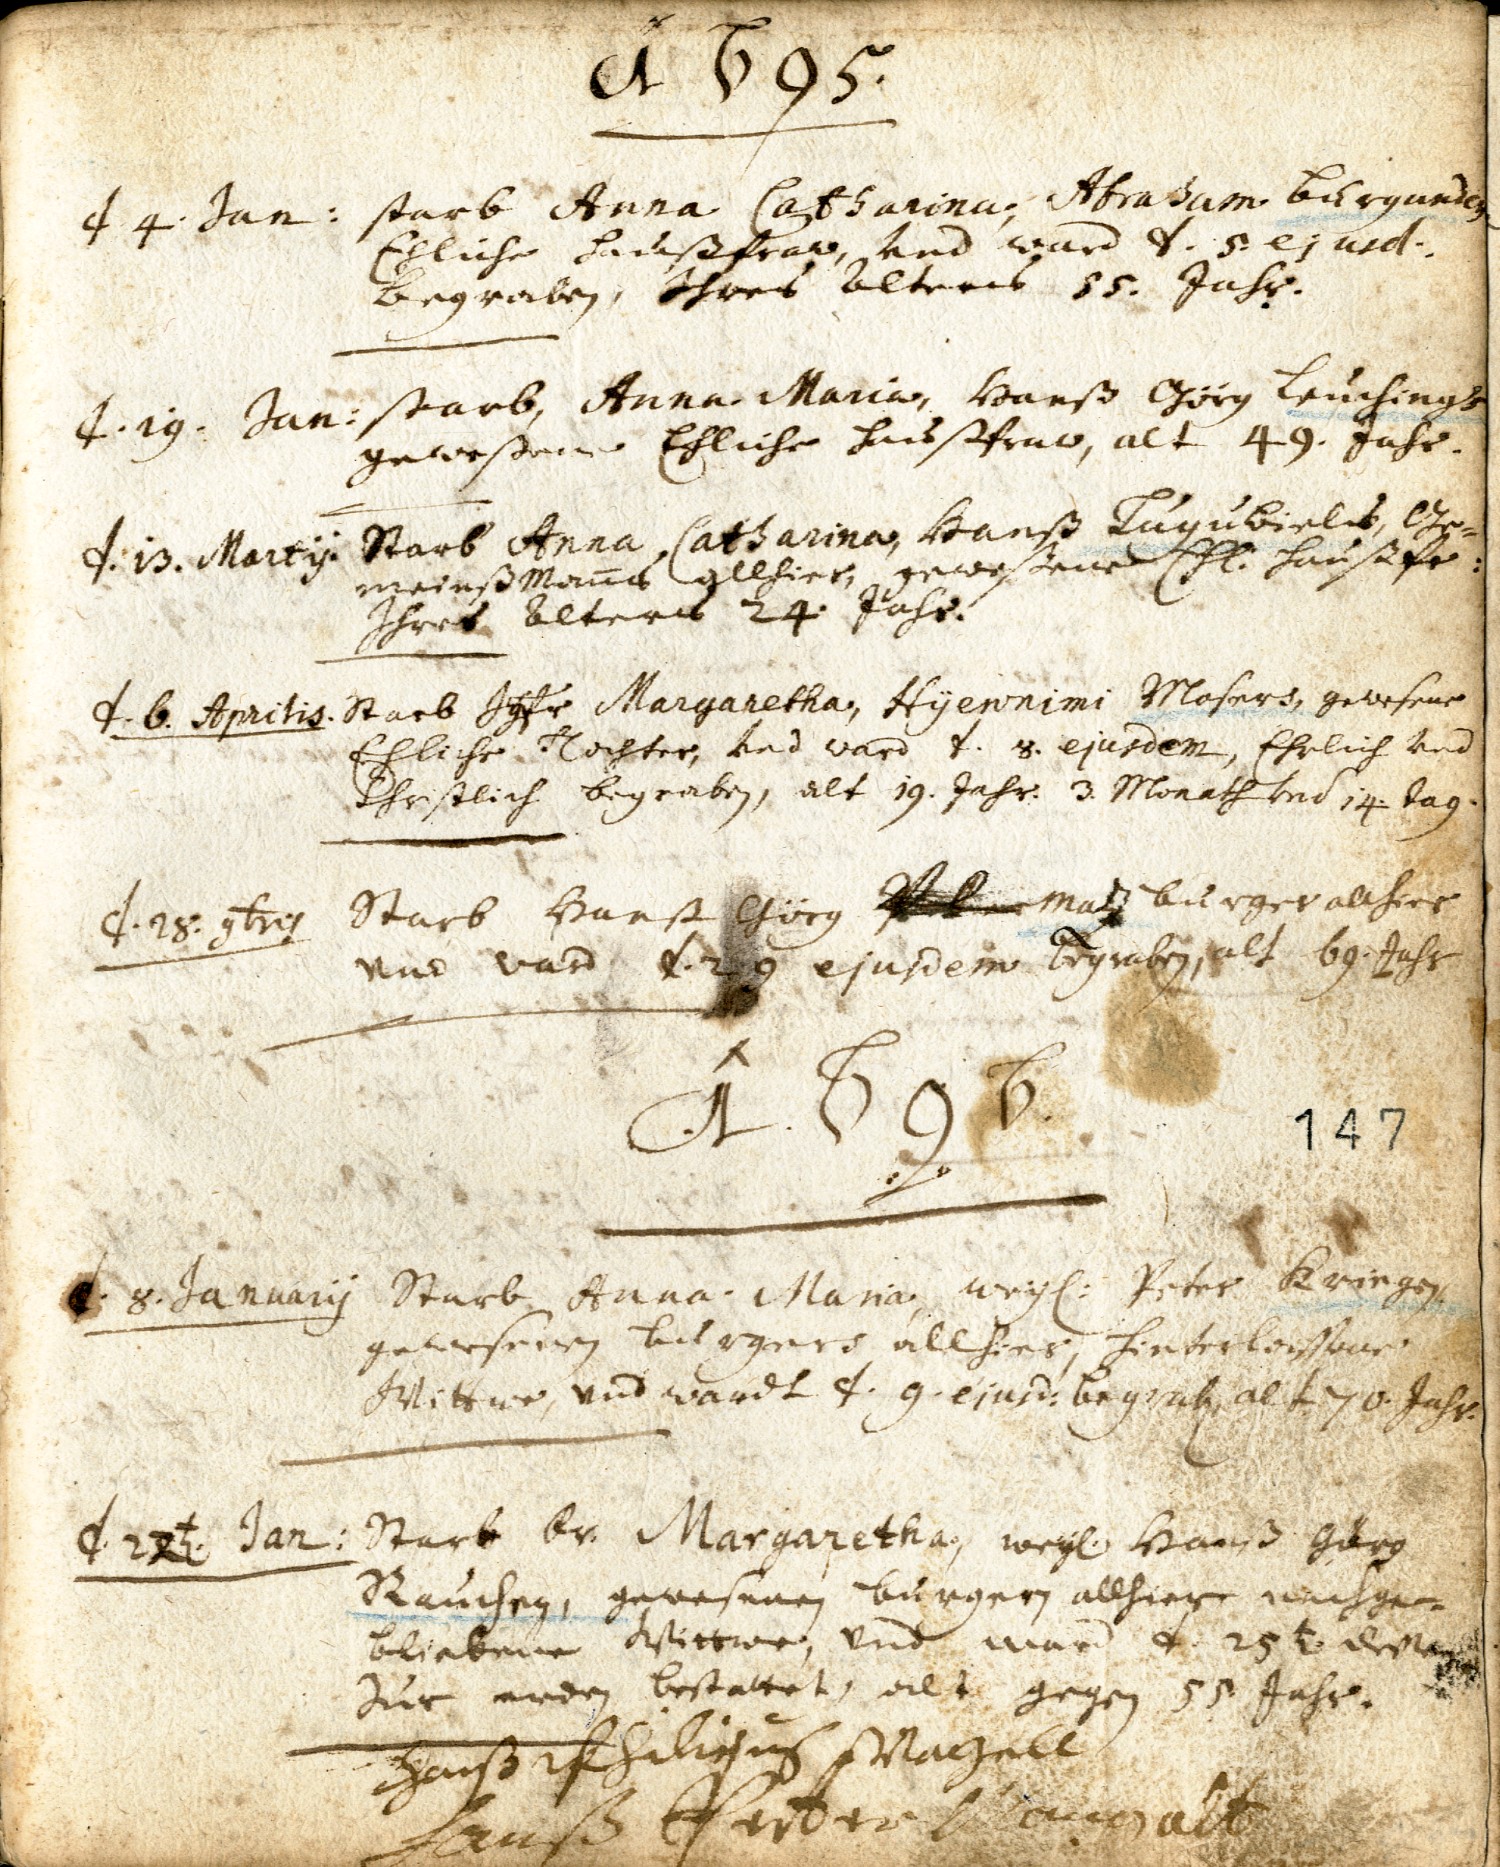 A 695.
d. 4. Jan: starb Anna Catharina, Abraham Burgunders
Ehliche haußfraw, und ward d. 5. ejusd.
begraben, Ihres Alters 55. Jahr.
d. 19. Jan: starb, Anna Maria, Hanß Görg Leuchings
geweßene Ehliche haußfraw, alt 49. Jahr.
d. 13. Martij. Starb Anna Catharina, Hanß Ge-
meinßmans allhier, geweßene Ehl. haußfr:
Ihres Alters 24. Jahr.
d. 6. Aprilis. Starb Jgfr Margaretha, Hyeronimi Mosers, gewesene
Ehliche Tochter, und ward d. 8. ejusdem, Ehrlich und
Christlich begraben, alt 19. Jahr. 3. Monath und 14. tag.
d. 28. 9bris Starb Hanß Görg burger allhier
und ward d. 29 ejusdem begraben, alt 69. Jahr
A. 696.
147
d. 8. Januarij Starb Anna Maria, weyl: Peter Kriegen,
gewesenen burgers allhier, hinterlassene
Wittwe, und wardt d. 9. ejusd: begrab, alt 70. Jahr.
d. Jan: Starb Fr. Margaretha, weyl. Hanß Görg
Rauchen, gewesenen burgers allhier nachge-
bliebene Wittwe, und ward d. 25t.
Zur erden bestattet, alt gegen 55 Jahr.
Hanß
Hanß Peter